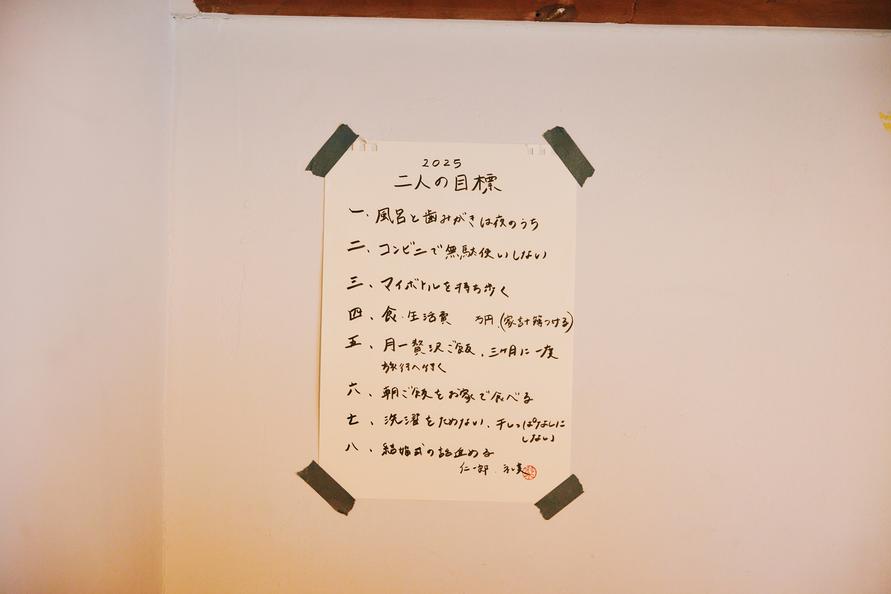 2025
二人の目標
一、風呂と歯みがきは夜のうち
二、コンビニで無駄使いしない
三、マイボトルを持ち歩く
四、食・生活費 万円、(家計簿つける)
五、月一贅沢ご飯、三ヶ月に一度
旅行へ行く
六、朝ご飯をお家で食べる
七、洗濯をためない、干しっぱなしに
しない
八、結婚式の話進める
仁一郎